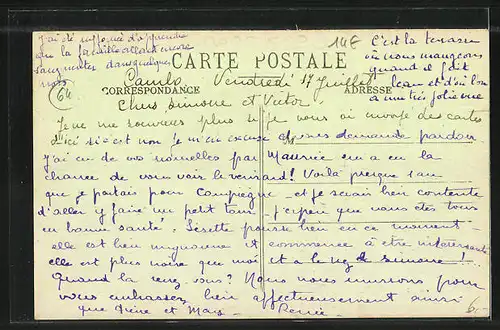 j'ai été
que la famille allait encore
augmenter dans quelques
mois
14€
C'est la terrasse
où nous mangeons
quand il fait
beau et d'où l'on
a une très jolie vue
CARTE POSTALE
CORRESPONDANCE
ADRESSE
64
Vendredi 17 Juillet
Chers Simone et Victor
Je ne me souviens plus si je vous ai envoyé des cartes
d'ici si c'est non je m'en excuse et vous demande pardon
j'ai eu de vos nouvelles par Maurice qui a eu la
chance de vous voir le veinard! Voilà presque 1 an
que je partais pour Compiègne et je serais bien contente
d'aller y faire un petit tour j'espère que vous êtes tous
en bonne santé. Lisette pousse bien en ce moment
elle est bien mignonne et commence à être intéressante
elle est plus noire que moi et a le nez de Simone!
Quand la verrez-vous? Nous nous unissons pour
vous embrasser bien affectueusement ainsi
que Irène et
Renée
6.